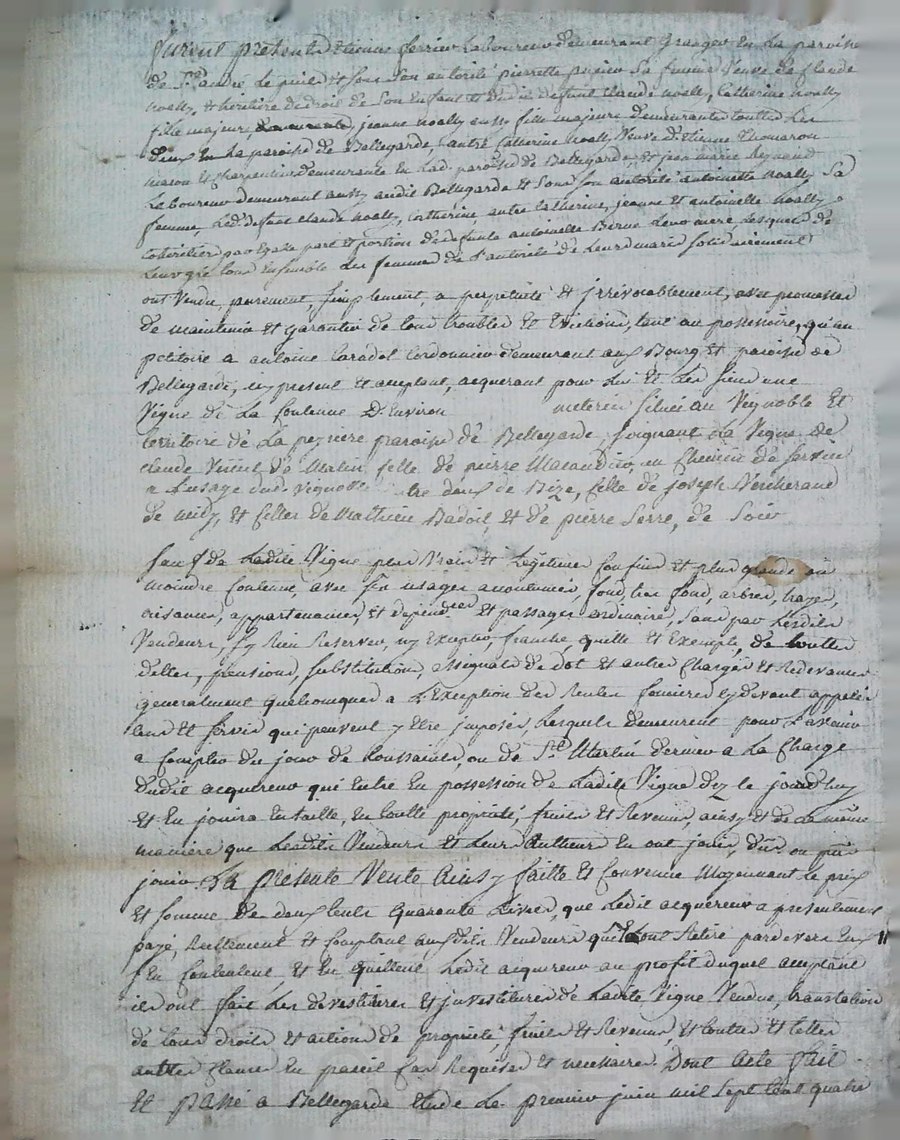 furent presents Etienne ferrier Laboureur demeurant Granger en la paroisse
de St andré le puits et sous son autorité pierrette pupier sa femme veuve de claude
noally, et heritiere de droit de son enfant et dudit defunt claude noally, Catherine noally
fille majeure, jeanne noally aussy fille majeure demeurantes toutes les
deux en la paroisse de Bellegarde, autre Catherine noally veuve d'Etienne Thomaron
masson et charpentier demeurante en lad. paroisse de Bellegarde, et jean marie
Laboureur demeurant aussy audit Bellegarde et sous son autorité antoinette noally sa
femme, Led. defunt claude noally, catherine, autre catherine, jeanne et antoinette noally
coheritiers par egale part et portion de defunte antoinette leur mere, Lesquels de
leur gré tous ensemble les femmes de l'autorité de leurs maris solidairement
ont vendu, purement, simplement, a perpetuité et jrrevocablement, avec promesse
de maintenir et garantir de tous troubles et evictions, tant au possessoire, qu'au
petitoire a antoine caradot cordonnier demeurant aux Bourg et paroisse de
Bellegarde, icy present et acceptant, acquerant pour luy et les siens une
vigne de la contenue d'environ meterées située au vignoble et
territoire de la paroisse de Bellegarde, joignant la vigne de
claude de matin, celle de pierre un chemin de servir
a l'usage dud. vignoble entre deux de Bize, celle de joseph
de midy, et celles de mathieu Badoil et de pierre Serre, de soir
sauf de ladite vigne plus vrais et legitimes confins et plus grande ou
moindre contenue, avec ses usages, fond, tres fond, arbres,
aisances, appartenances et dependces et passages ordinaires, sans par lesdits
vendeurs, s'y rien reserver, ny excepter, franche, quitte et exempte, de toutes
dettes, pensions, substitution, assignats de dot et autres charges et redevances
generalement quelconques a l'exception des rentes foncieres cydevant appellées
cens et servis qui peuvent y etre jmposés, lesquels demeurent pour l'avenir
a compter du jour de toussaints, ou de St Martin dernier a la charge
dudit acquereur qui entre en possession de ladite vigne dez le jourd'huy
et en jouira en taille, en toutte proprieté, fruits et revenus, ainsy et de la même
maniere que lesdits vendeurs et leurs autheurs en ont jouis, dus ou pu
jouir. La presente vente ainsy faitte et convenue moyennant le prix
et somme de deux cents quarante livres, que ledit acquereur a presentement
payé, reellement et comptant auxdits vendeurs qui l'ont retiré pardevers eux
s'en contentent et en quittent ledit acquereur au profit duquel acceptant
ils ont fait les devestitures et jnvestitures de ladite vigne vendue, translation
de tous droits et actions de proprieté, fruits et revenus, et toutes et telles
autres clauses en pareil cas requises et necessaires. Dont acte fait
et passé a Bellegarde etude le premier juin mil sept cent quatre